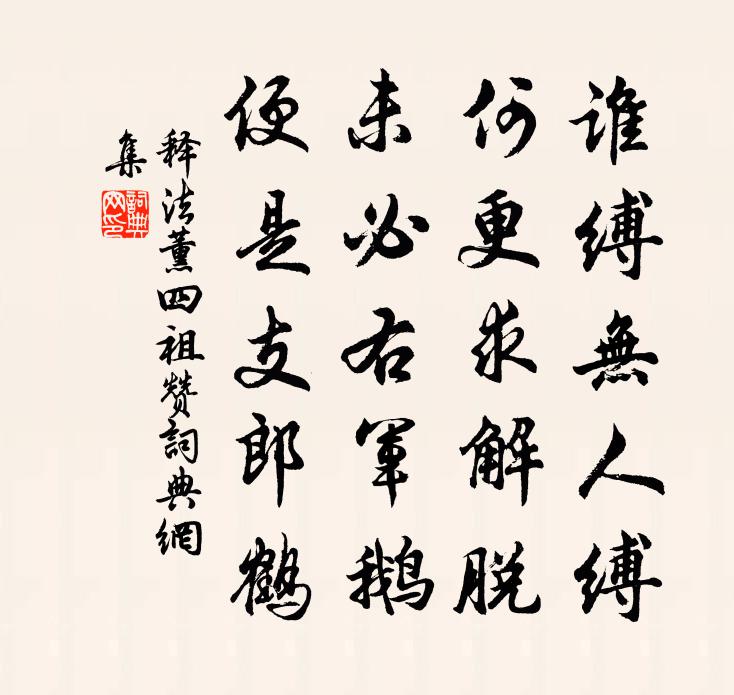 誰縛無人縛
何更求解脫
未必右軍鹅
便是支郎鶴
释法薰四祖赞詞典網
集
詞典网印